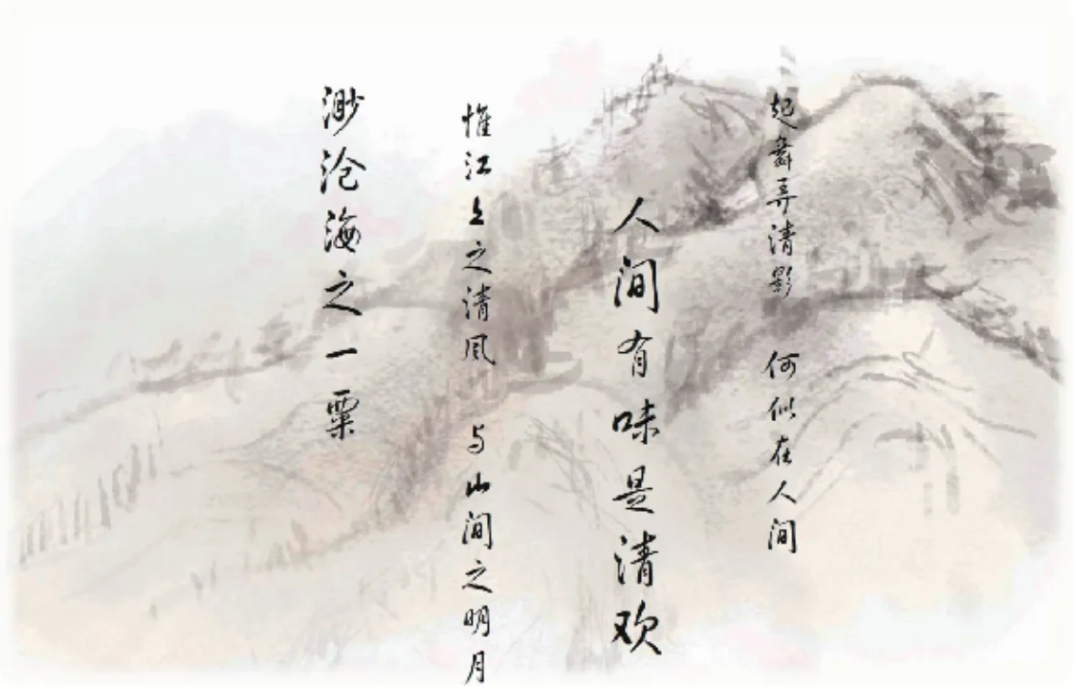 起舞弄清影 何似在人间
人间有味是清欢
惟江上之清风 与山间之明月
渺沧海之一粟